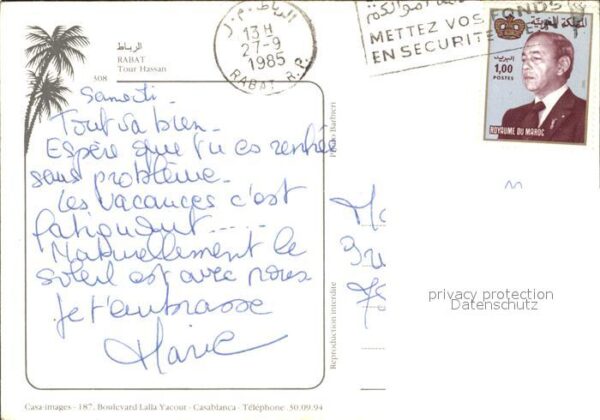 الرباط
RABAT
Tour Hassan
308
الرباط ر.م.
13H
27-9
1985
RABAT R.P.
METTEZ VOS FONDS
EN SECURITE
المملكة المغربية
البريد
1,00
POSTES
ROYAUME DU MAROC
Samedi -
Tout va bien -
Espère que tu es rentrée
sans problème -
Les vacances c'est
fatiguant.....
Naturellement le
soleil est avec nous
Je t'embrasse
Marie
Photo Barbieri
Reproduction interdite
privacy protection
Datenschutz
Casa-images - 187, Boulevard Lalla Yacout - Casablanca - Téléphone 30.09.94